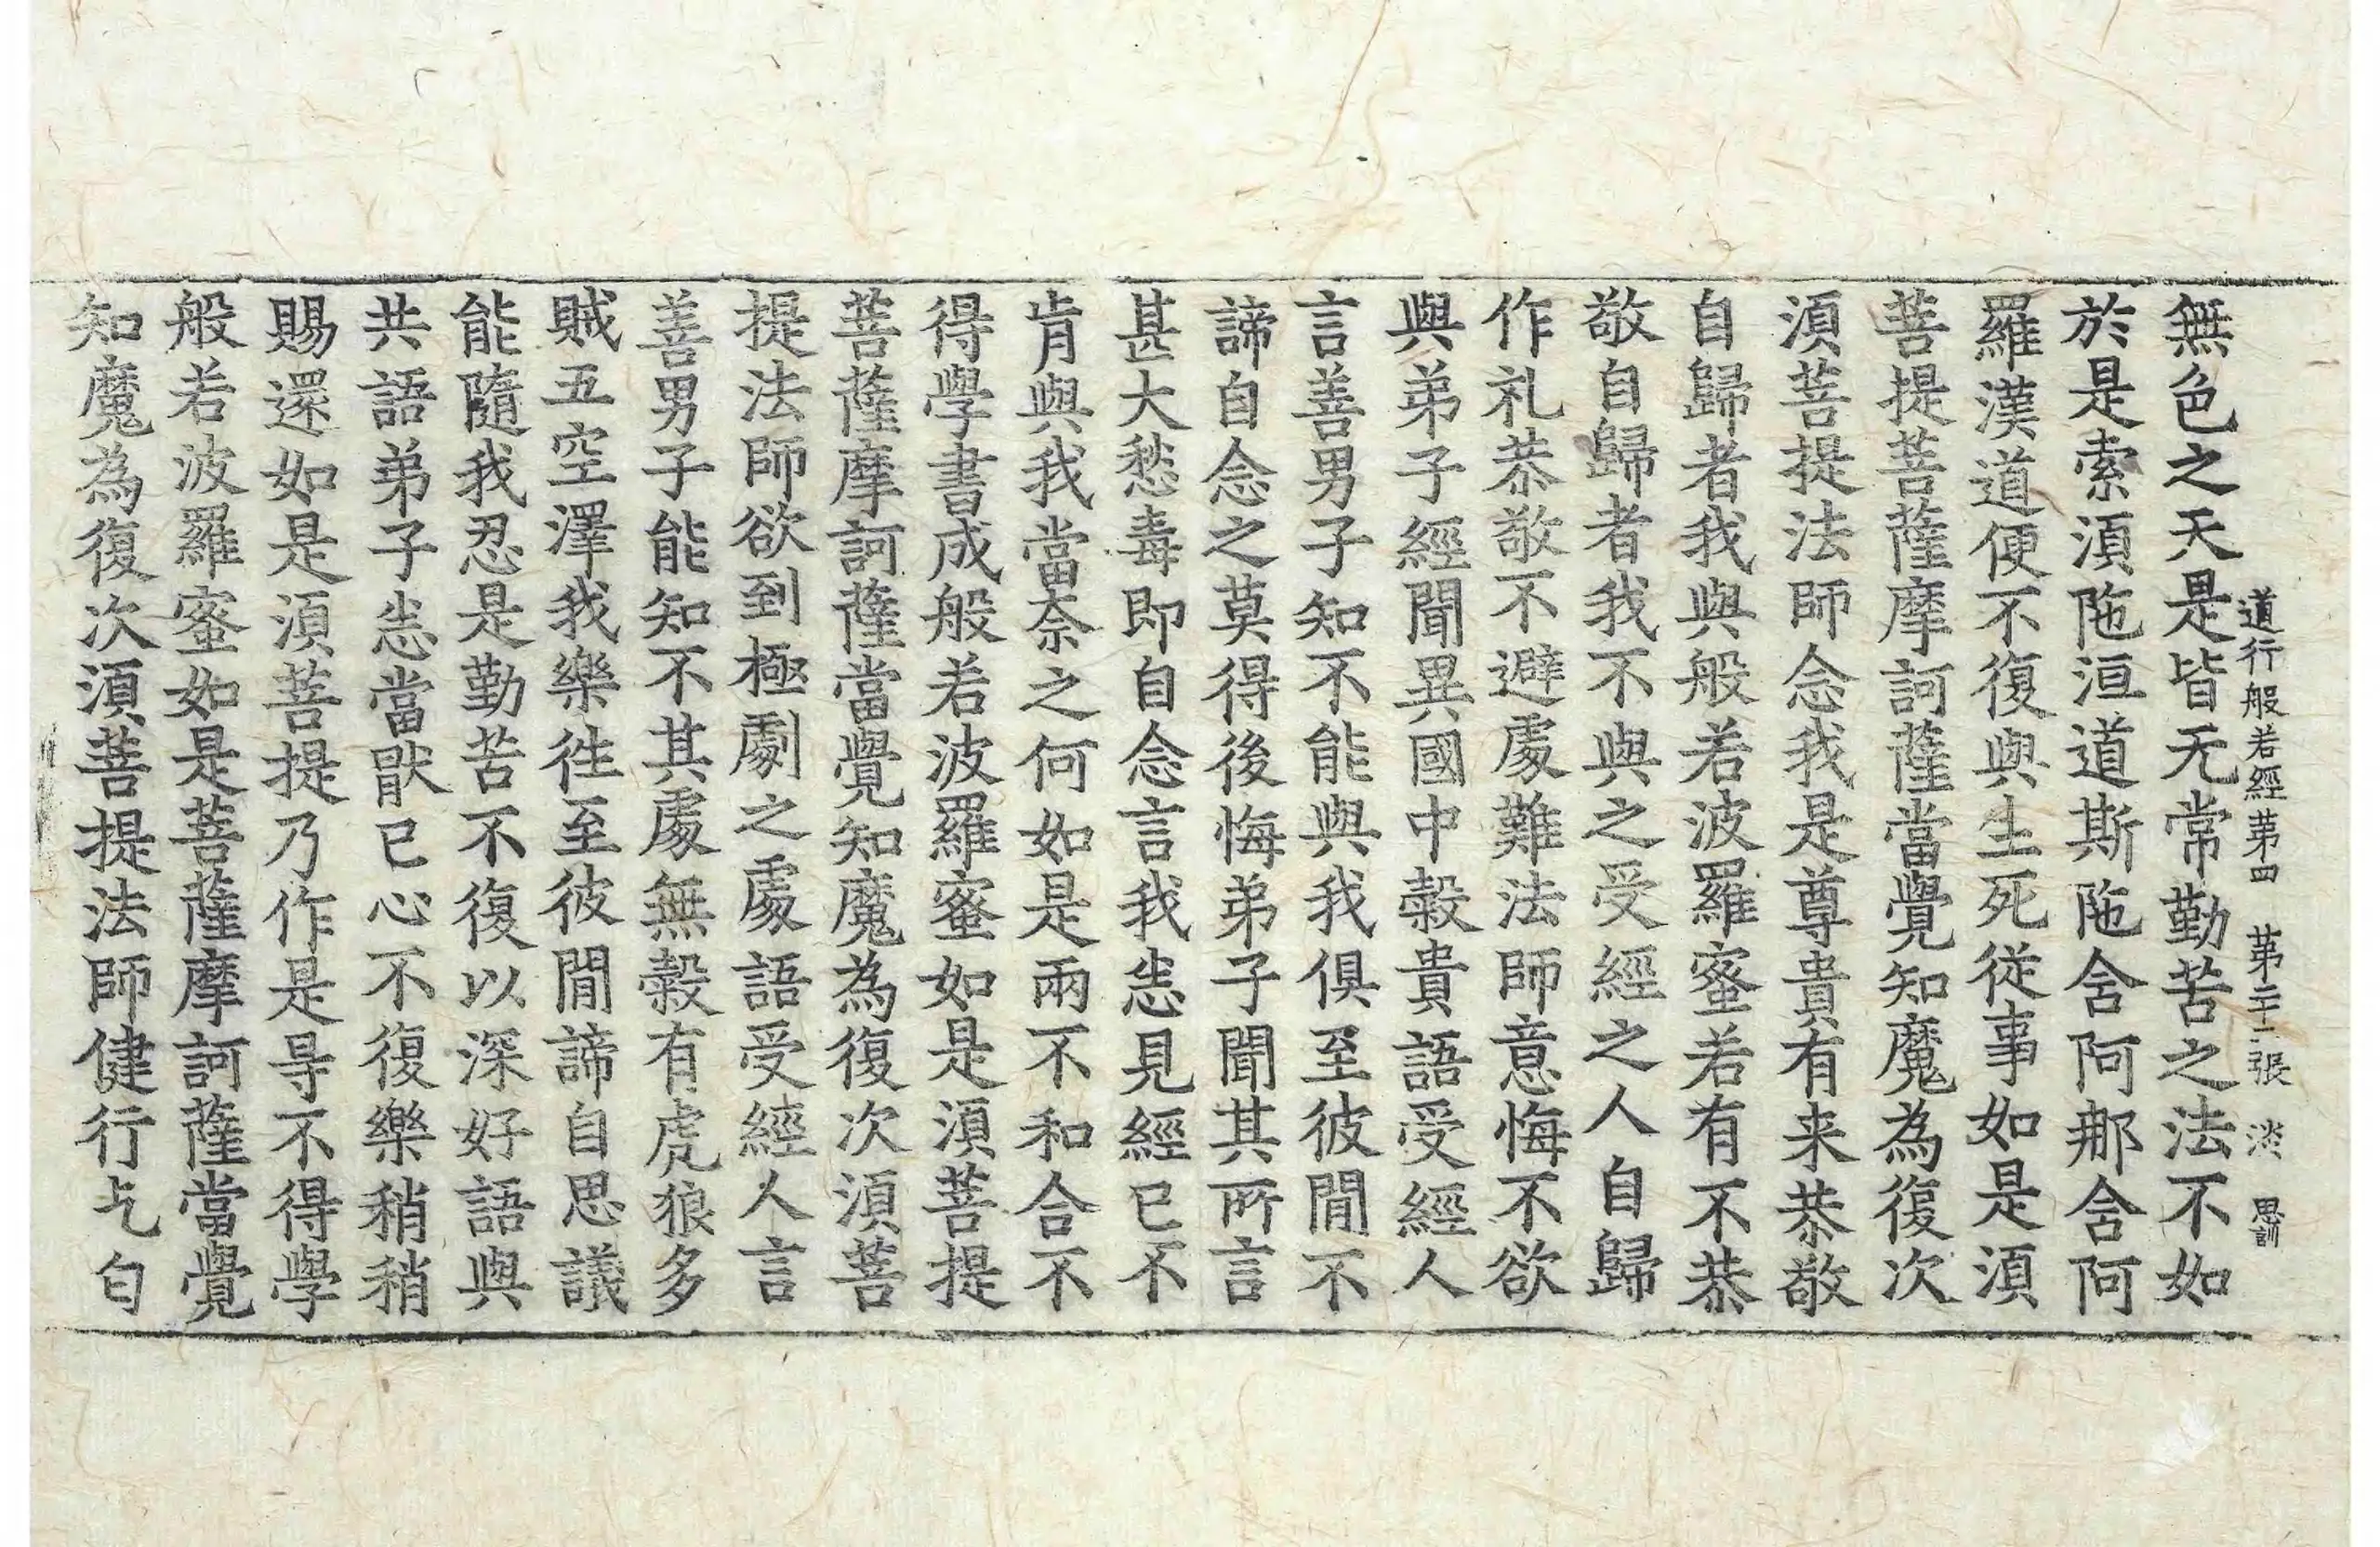 道行般若經第四 第二十二張 淡 思訓
無色之天是皆无常勤苦之法不如
於是索湏陁洹道斯陁含阿那含阿
羅漢道便不復與生死從事如是湏
菩提菩薩摩訶薩當覺知魔為復次
湏菩提法師念我是尊貴有来恭敬
自歸者我與般若波羅蜜若有不恭
敬自歸者我不與之受經之人自歸
作礼恭敬不避處難法師意悔不欲
與弟子經聞異國中穀貴語受經人
言善男子知不能與我俱至彼間不
諦自念之莫得後悔弟子聞其所言
甚大愁毒即自念言我恚見經已不
肯與我當奈之何如是兩不和合不
得學書成般若波羅蜜如是湏菩提
菩薩摩訶薩當覺知魔為復次湏菩
提法師欲到極劇之處語受經人言
善男子能知不其處無穀有虎狼多
賊五空澤我樂徃至彼間諦自思議
能隨我忍是勤苦不復以深好語與
共語弟子恚當猒已心不復樂稍稍
賜還如是湏菩提乃作是㝵不得學
般若波羅蜜如是菩薩摩訶薩當覺
知魔為復次湏菩提法師健行乞匂